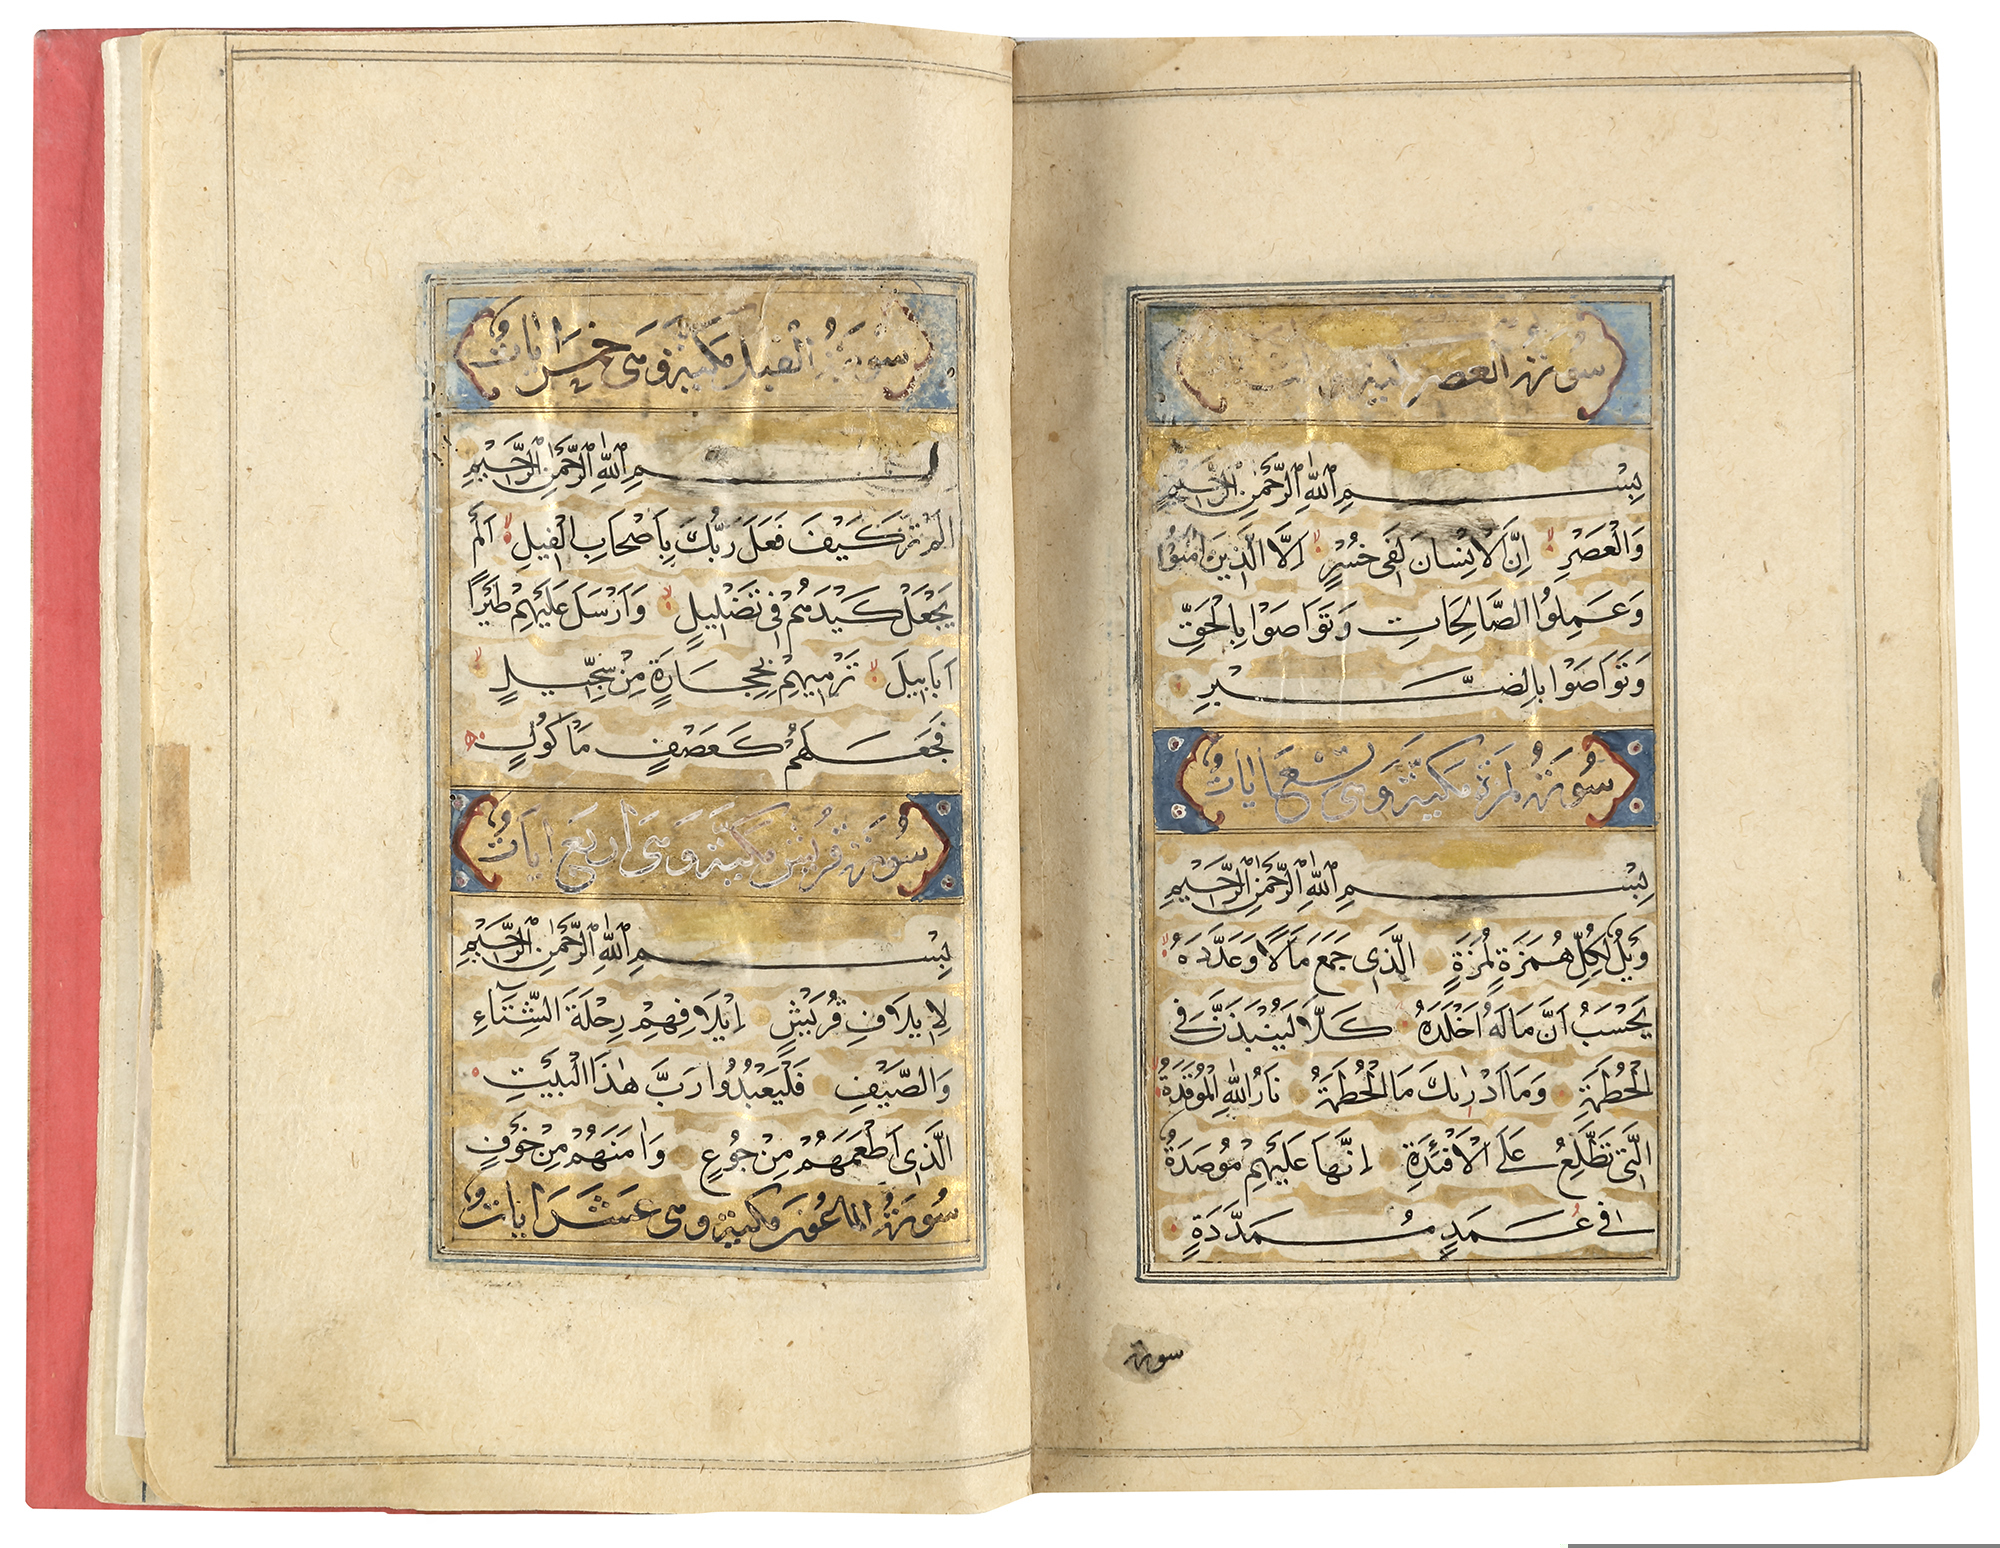 سورة العصر مكية
بِسْمِ اللّٰهِ الرَّحْمٰنِ الرَّحِيمِ
وَالْعَصْرِ اِنَّ الْاِنْسَانَ لَفٖى خُسْرٍ اِلَّا الَّذٖينَ اٰمَنُوا
وَعَمِلُوا الصَّالِحَاتِ وَتَوَاصَوْا بِالْحَقِّ
وَتَوَاصَوْا بِالصَّبْرِ
سُورَةُ لمزة مَكِّيَّةٌ وَهِىَ تِسْعُ اٰيَاتٍ
بِسْمِ اللّٰهِ الرَّحْمٰنِ الرَّحِيمِ
وَيْلٌ لِكُلِّ هُمَزَةٍ لُمَزَةٍ الَّذٖى جَمَعَ مَالًا وَعَدَّدَهُ
يَحْسَبُ اَنَّ مَالَهُ اَخْلَدَهُ كَلَّا لَيُنْبَذَنَّ فِى
الْحُطَمَةِ وَمَا اَدْرٰيكَ مَا الْحُطَمَةُ نَارُ اللّٰهِ الْمُوقَدَةُ
الَّتٖى تَطَّلِعُ عَلَى الْاَفْئِدَةِ اِنَّهَا عَلَيْهِمْ مُؤْصَدَةٌ
فٖى عَمَدٍ مُمَدَّدَةٍ
سورة
سُورَةُ الْفٖيل مَكِّيَّةٌ وَهِىَ خَمْسُ اٰيَاتٍ
بسم اللّٰهِ الرَّحْمٰنِ الرَّحِيمِ
اَلَمْ تَرَ كَيْفَ فَعَلَ رَبُّكَ بِاَصْحَابِ الْفٖيلِ اَلَمْ
يَجْعَلْ كَيْدَهُمْ فٖى تَضْلٖيلٍ وَاَرْسَلَ عَلَيْهِمْ طَيْرًا
اَبَابٖيلَ تَرْمٖيهِمْ بِحِجَارَةٍ مِنْ سِجّٖيلٍ
فَجَعَلَهُمْ كَعَصْفٍ مَاْكُولٍ
سُورَةُ قُرَيْش مَكِّيَّةٌ وَهِىَ اَرْبَعُ اٰيَاتٍ
بِسْمِ اللّٰهِ الرَّحْمٰنِ الرَّحِيمِ
لِاٖيلَافِ قُرَيْشٍ اٖيلَافِهِمْ رِحْلَةَ الشِّتَاءِ
وَالصَّيْفِ فَلْيَعْبُدُوا رَبَّ هٰذَا الْبَيْتِ
الَّذٖى اَطْعَمَهُمْ مِنْ جُوعٍ وَاٰمَنَهُمْ مِنْ خَوْفٍ
سُورَةُ الماعون مَكِّيَّةٌ وَهِىَ عَشَرَ اٰيَاتٍ